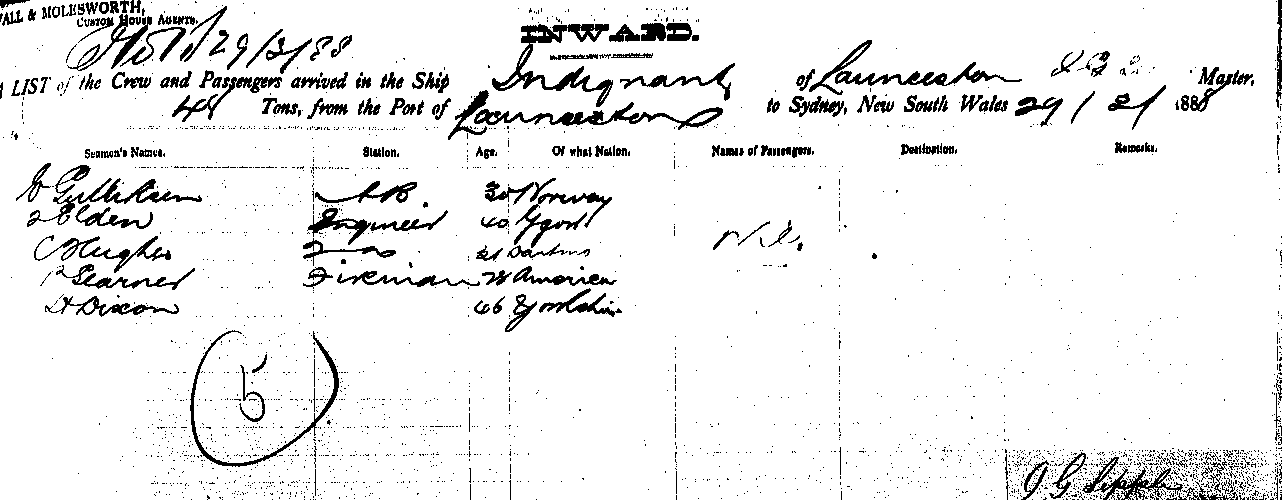 ALL & MOLESWORTH,
CUSTOM HOUSE AGENTS.
29/3/88
INWARD.
LIST of the Crew and Passengers arrived in the Ship Indignant of Launceston Master,
48 Tons, from the Port of Launceston to Sydney, New South Wales 29/3/1888
Seamen's Names. Station. Age. Of what Nation. Names of Passengers. Destination. Remarks.
Gulliksen A.B. 30 Norway
Elden Engineer 40
C Hughes 21 Nil.
Fireman 28 America
H Dixon 46 Yorkshire
5
J G